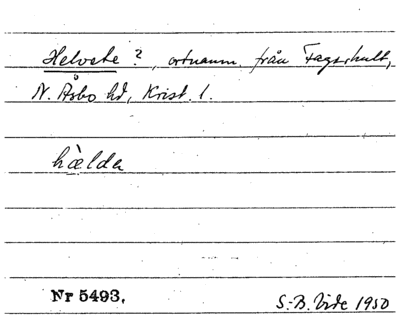 Helvete ?, ortnamn från Fagerhult,
N. Åsbo hd, Krist. l.
hælda
Nr 5493.
S.-B. Vide 1950